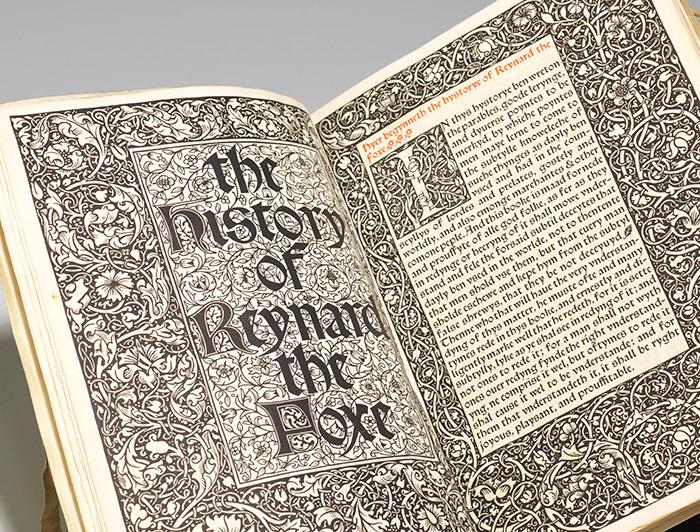 the
history
of
Reynard
the
Foxe
Hyer begynneth the hystorye of Reynard the
Foxe
In thys hystorye ben wreton
the parables, goode lerynge,
and dyverse poyntes to be
merkyd, by whiche poyntes
men maye lerne to come to
the subtylle knoweleche of
suche thynges as dayly ben
used and had in the coun-
seyllys of lordes and prelates, gostly and
worldly, and also emonge marchantes & other
comone peple. And this booke is maad for nede
and prouffyte of alle god folke, as fer as they
in redynge or heeryng of it shal mowe under-
stand and fele the forsaid subtyl deceytes that
dayly ben used in the worlde; not to thentente
that men shold use them, but that every man
sholde eschewe and kepe hym from the subtyl
false shrewys, that they be not deceyuyd.
Thenne who that wyll have the very understan-
dyng of this mater, he muste ofte and many
tymes rede in thys boke, and ernestly and dy-
lygently marke well that he redeth. For it is sette
subtylly, lyke as ye shal see in redyng of it; and
not ones to rede it; for a man shal not wyth
ones over redyng fynde the ryght understand-
ing, ne comprise it wel; but oftymes to rede it
shal cause it wel to be understande; and for
them that understandeth it, it shall be ryght
joyous, playsant, and prouffitable.